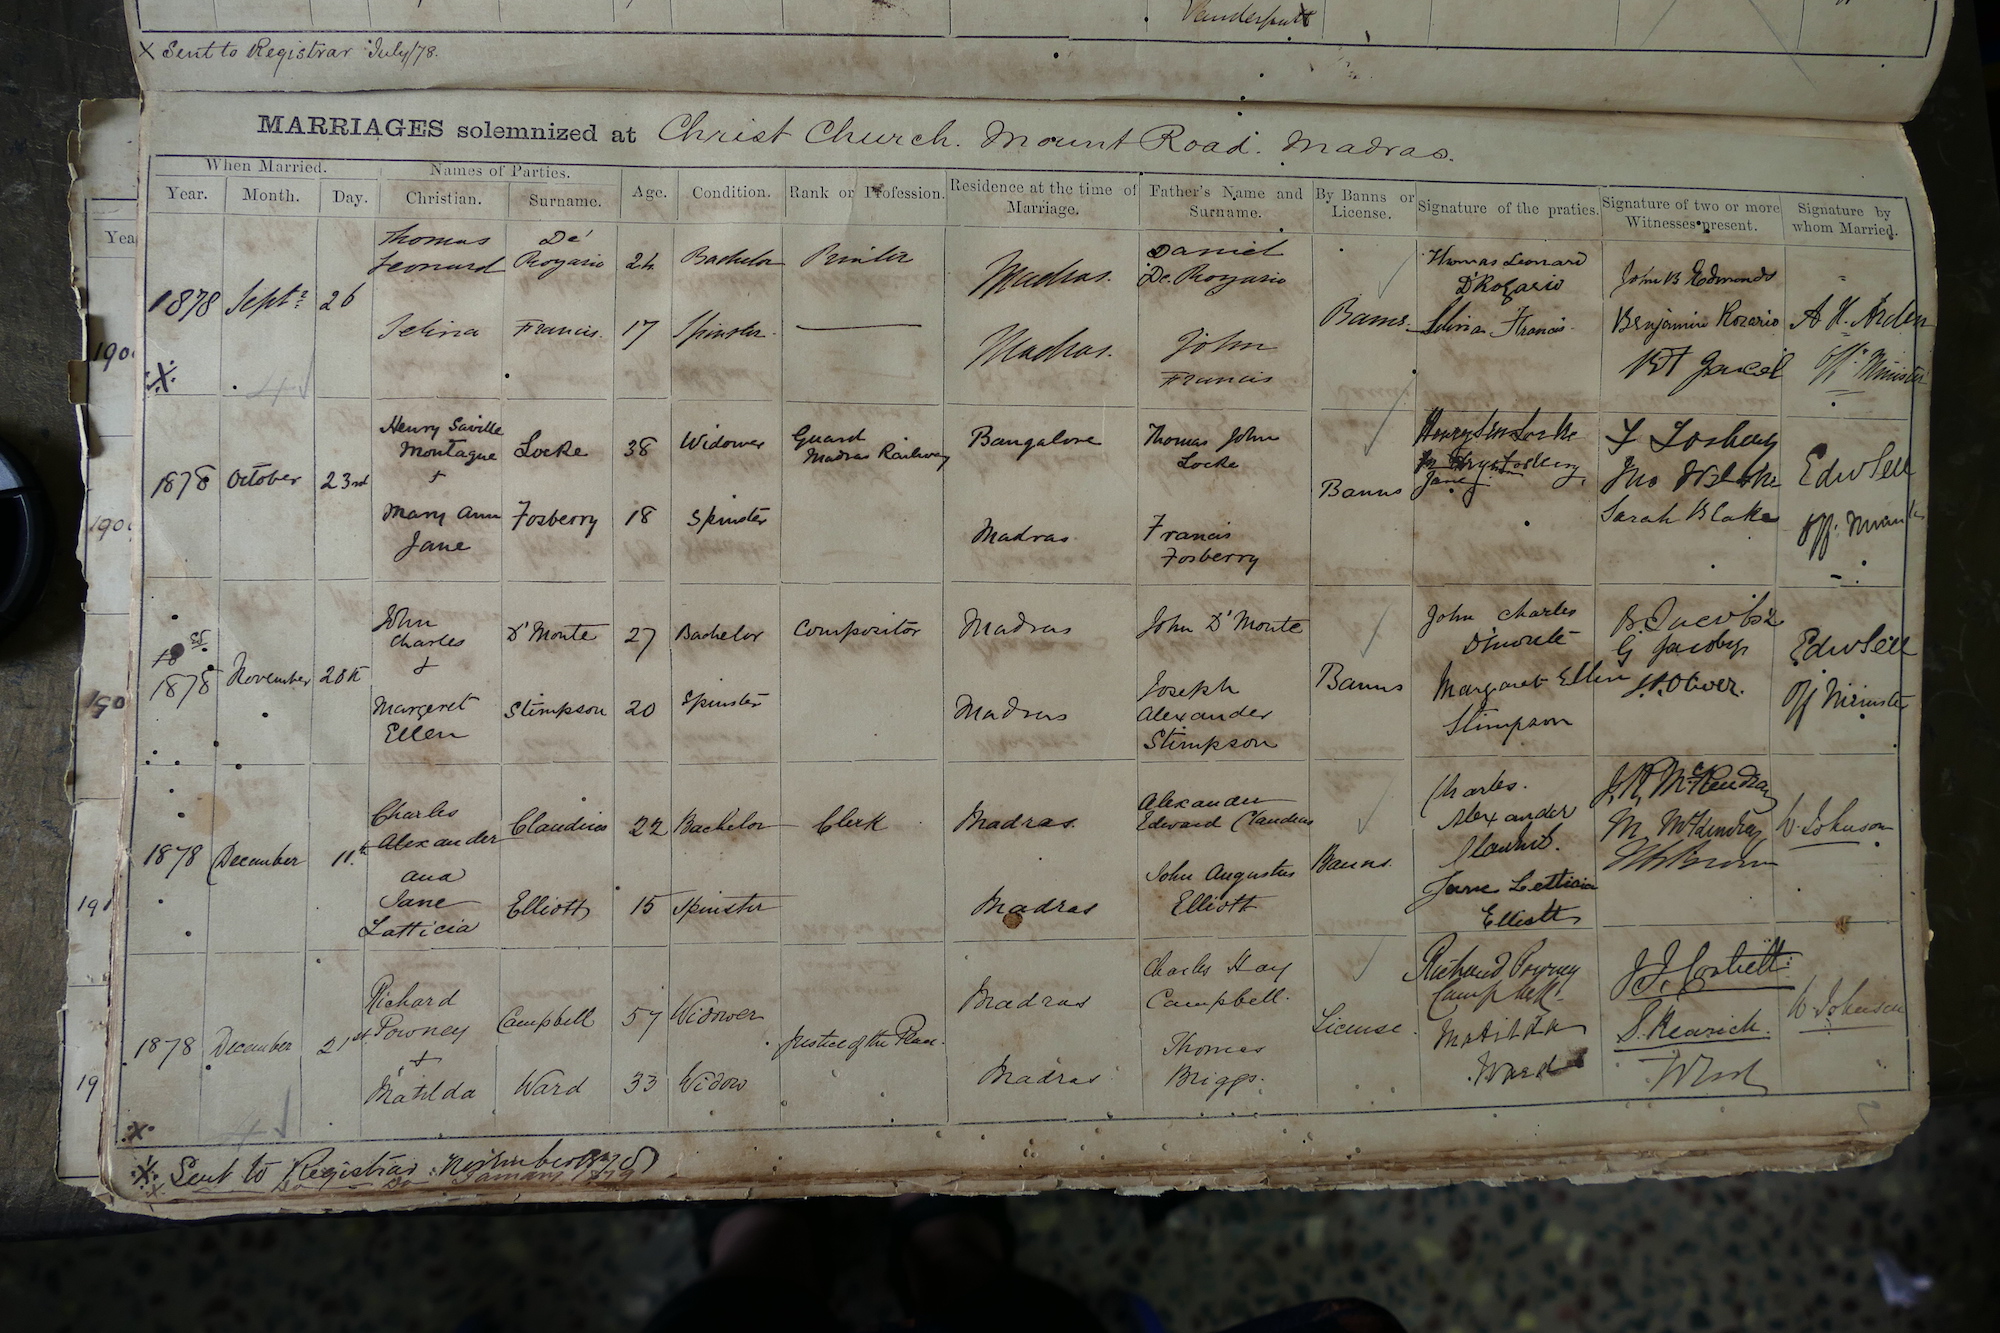 Vanderputt
X Sent to Registrar July/78.
MARRIAGES solemnized at Christ Church. Mount Road. Madras.
When Married. Names of Parties.
Year. Month. Day. Christian. Surname. Age. Condition. Rank or Profession. Residence at the time of Marriage. Father's Name and Surname. By Banns or License. Signature of the praties. Signature of two or more Witnesses present. Signature by whom Married.
Thomas Leonard De' Rozario 24 Bachelor Printer Madras. Daniel De Rozario Thomas Leonard D'Rozario John B Edmonds
1878 Septr 26 Banns. A. H. Arden
Selina Francis. 17 Spinster. Madras. John Francis Selina Francis. Benjamin Rozario
Offg Minister
X
Henry Saville Montague Locke 38 Widower Guard Madras Railway Bangalore Thomas John Locke
+
1878 October 23rd Banns Edw Sell
Mary Ann Jane Fosberry 18 Spinster Madras Francis Fosberry Jane Sarah Blake
Off: Minister
John Charles D'Monte 27 Bachelor Compositor Madras John D'Monte John Charles D'monte G Jacobs
+
1878 November 20th Banns Edw Sell
Margeret Ellen Stimpson 20 Spinster Madras Joseph Alexander Stimpson Margaret Ellen Stimpson Oliver.
Off Minister
Charles Alexander Claudius 22 Bachelor Clerk Madras. Alexander Edward Claudius Charles. Alexander
1878 December 11th and Banns. W. Johnson
Jane Latticia Elliott 15 Spinster Madras John Augustus Elliott Jane Letticia Elliott Brown
Richard Powney Campbell 57 Widower Justice of the Peace. Madras Charles Hay Campbell. Richard Powney Campbell J. J. Corbett
1878 December 21st + License. W. Johnson
Matilda Ward 33 Widow Madras Thomas Briggs. Matilda Ward
X
X Sent to Registrar November 1878
X Do Do January 1879
Yea
190
190
190
19
19